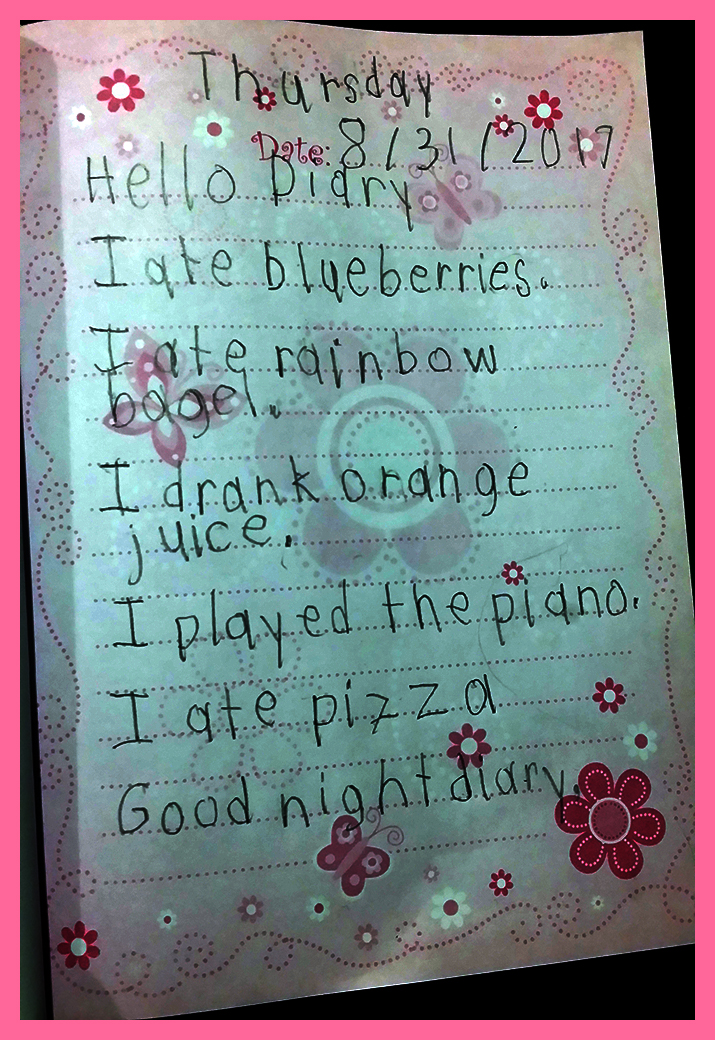 Thursday
Date: 8/31/2017
Hello Diary
I ate blueberries.
I ate rainbow
bagel.
I drank orange
juice.
I played the piano.
I ate pizza
Good night diary.